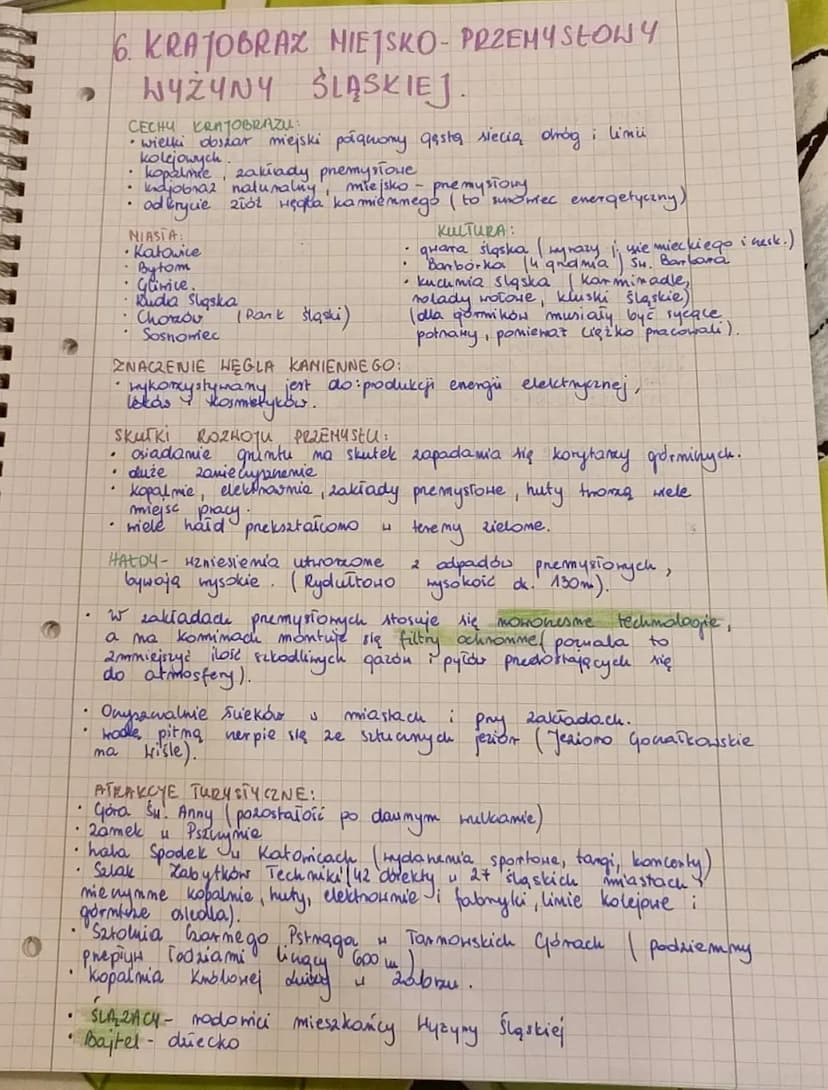 6. KRAJOBRAZ MIEJSKO-PRZEMYSŁOWY
WYŻYNY ŚLĄSKIEJ.
CECHY KRAJOBRAZU:
• wielki obszar miejski połączony gęstą siecią dróg i linii
kolejowych.
• kopalnie, zakłady przemysłowe
• krajobraz naturalny, miejsko-przemysłowy
• odkrycie złóż węgla kamiennego (to surowiec energetyczny)
MIASTA:
• Katowice
• Bytom
• Gliwice.
• Ruda Śląska
• Chorzów (Park Śląski)
• Sosnowiec
KULTURA:
• gwara śląska (wyrazy j. niemieckiego i czesk.)
• Barbórka (4 grudnia) Św. Barbara
• kuchnia śląska (karminadle,
rolady wołowe, kluski śląskie)
(dla górników musiały być sycące
potrawy, ponieważ ciężko pracowali).
ZNACZENIE WĘGLA KAMIENNEGO:
• wykorzystywany jest do: produkcji energii elektrycznej,
leków i kosmetyków.
SKUTKI ROZWOJU PRZEMYSŁU:
• osiadanie gruntu na skutek zapadania się korytarzy górniczych.
• duże zanieczyszczenie
• kopalnie, elektrownie, zakłady przemysłowe, huty tworzą wiele
miejsc pracy.
• wiele hałd przekształcono w tereny zielone.
HAŁDY - wzniesienia utworzone z odpadów przemysłowych,
bywają wysokie. (Rydułtowo wysokość ok. 130m).
• W zakładach przemysłowych stosuje się nowoczesne technologie,
a na kominach montuje się filtry ochronne (pozwala to
zmniejszyć ilość szkodliwych gazów i pyłów przedostających się
do atmosfery).
• Oczyszczalnie ścieków w miastach i przy zakładach.
• wodę pitną czerpie się ze sztucznych jezior (Jezioro Goczałkowskie
na Wiśle).
ATRAKCJE TURYSTYCZNE:
• Góra Św. Anny (pozostałość po dawnym wulkanie)
• zamek w Pszczynie
• hala Spodek w Katowicach (wydarzenia sportowe, targi, koncerty)
• Szlak Zabytków Techniki (42 obiekty w 27 śląskich miastach
nieczynne kopalnie, huty, elektrownie i fabryki, linie kolejowe i
górnicze osiedla).
• Sztolnia Czarnego Pstrąga w Tarnowskich Górach (podziemny
przepływ łodziami liczący 600 m)
• Kopalnia Królowej Luizy w Zabrzu.
• ŚLĄZACY - rodowici mieszkańcy Wyżyny Śląskiej
• Bajtel - dziecko